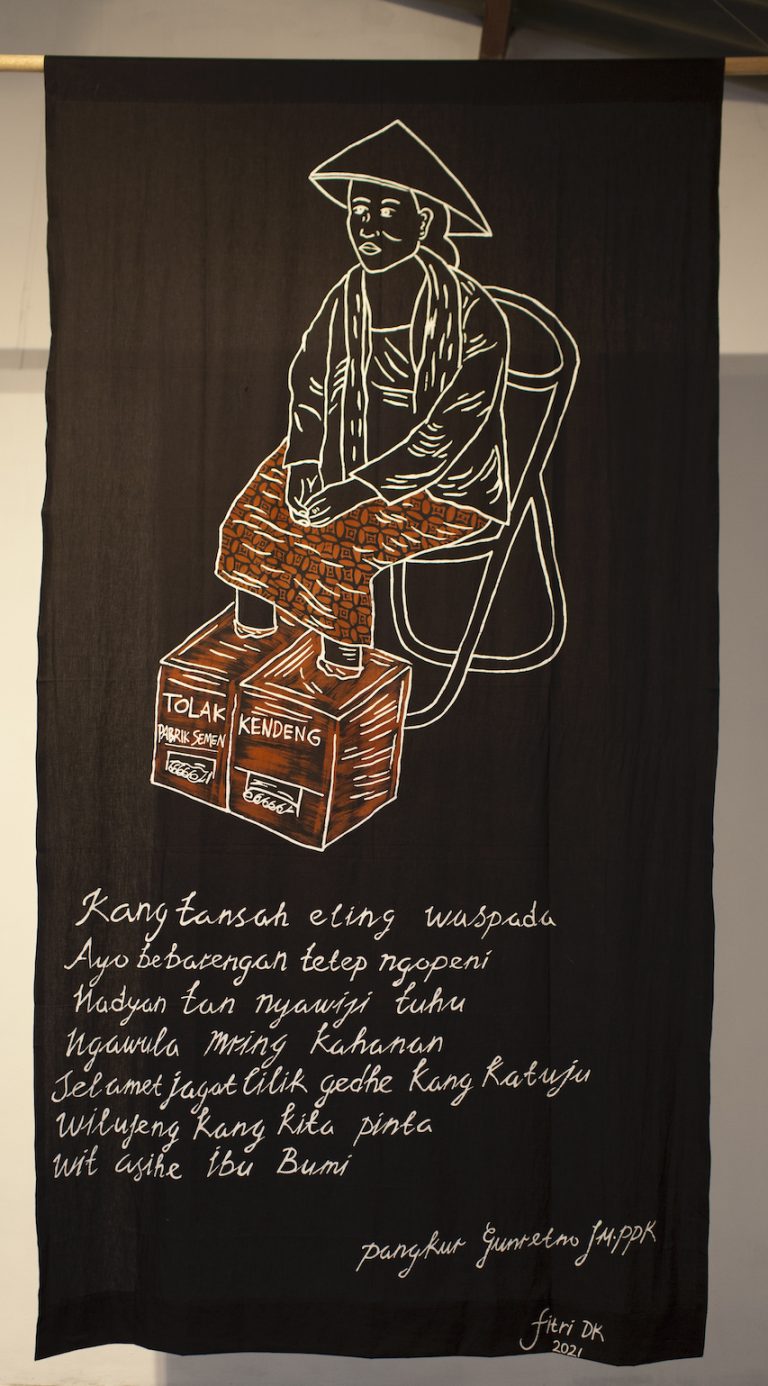 TOLAK
PABRIK SEMEN
KENDENG
Kang tansah eling waspada
Ayo bebarengan tetep ngopeni
Nadyan tan nyawiji tuhu
Ngawula mring kahanan
Selamet jagat lilik gedhe kang katuju
Wilujeng kang kita pinta
Wit asihe ibu Bumi
pangkur Gunretno JM.PPK
fitri DK
2021